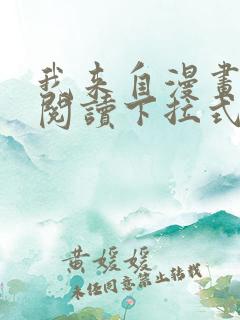 我来自漫畫
閱讀下拉式
黄媛媛
未经同意禁止转载